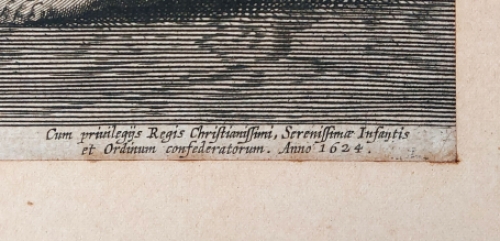 Cum priuilegijs Regis Christianissimi, Serenissimæ Infantis
et Ordinum confederatorum. Anno 1624.